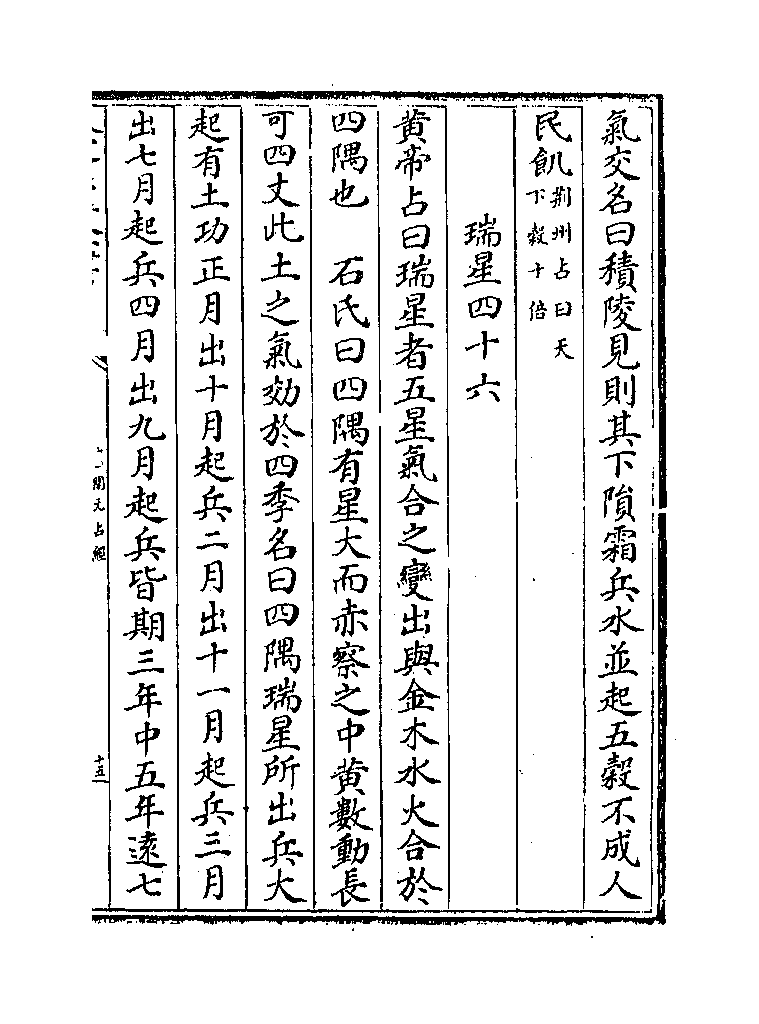 氣交名曰積陵見則其下隕霜兵水並起五穀不成人
民飢荆州占曰天下穀十倍
瑞星四十六
黄帝占曰瑞星者五星氣合之變出與金木水火合於
四隅也　石氏曰四隅有星大而赤察之中黄數動長
可四丈此土之氣効於四季名曰四隅瑞星所出兵大
起有土功正月出十月起兵二月出十一月起兵三月
出七月起兵四月出九月起兵皆期三年中五年遠七
開元占經
十五